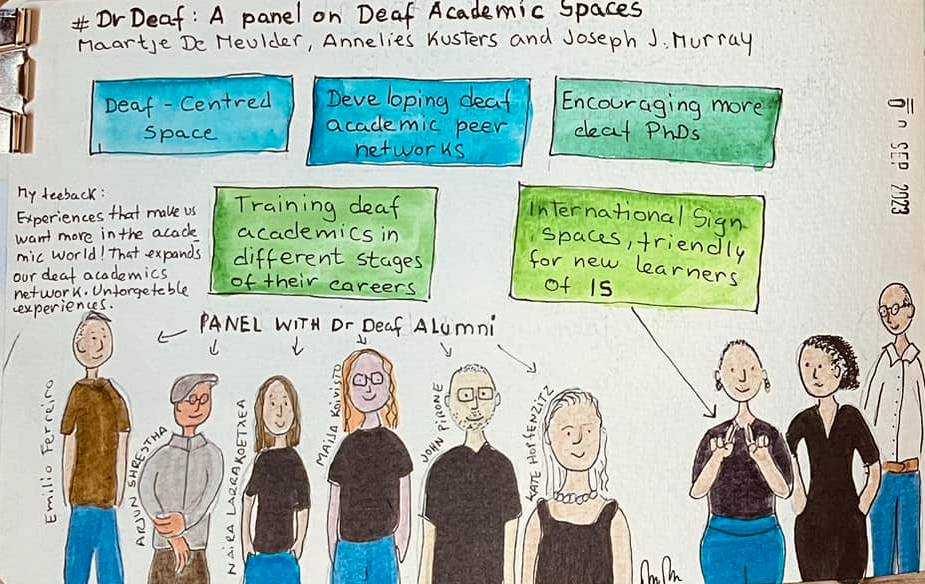 # Dr Deaf: A panel on Deaf Academic Spaces
Maartje De Meulder, Annelies Kusters and Joseph J. Murray
Deaf-Centred
Space
Developing deaf
academic peer
networks
Encouraging more
deaf PhDs
SEP 2023
My feeback:
Experiences that make us
want more in the acade_
mic world! That expands
our deaf academics
network. Unforgetable
experiences.
Training deaf
academics in
different stages
of their careers
International Sign
spaces, friendly
for new learners
of IS
PANEL WITH Dr Deaf Alumni
Emilio Ferreiro
ARJUN SHRESTHA
NAIRA LARRAKOETXEA
MAIJA Koivisto
JOHN PIRONE
KATE HOFFENZITZ